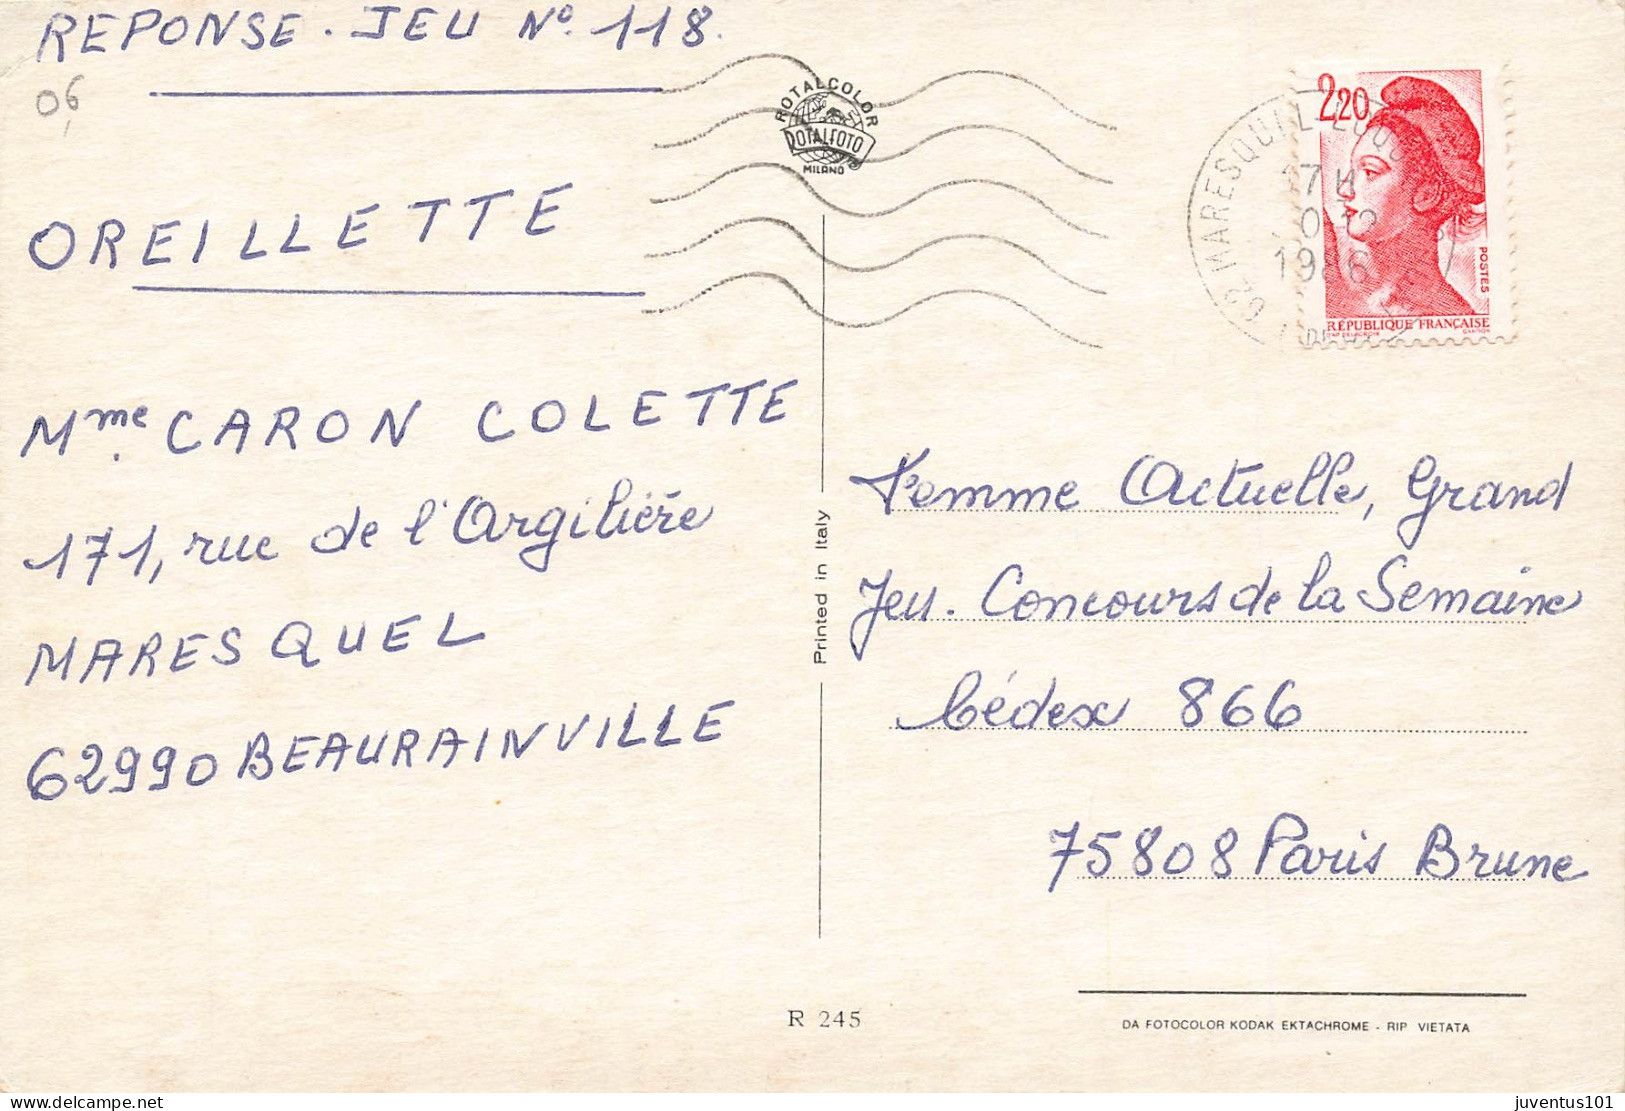 REPONSE. JEU N° 118.
06
OREILLETTE
Mme CARON COLETTE
171, rue de l'Argilière
MARESQUEL
62990 BEAURAINVILLE
ROTALCOLOR
ROTALFOTO
MILANO
Printed in Italy
R 245
2,20
POSTES
RÉPUBLIQUE FRANÇAISE
62 MARESQUEL
17H
1986
Femme Actuelle, Grand
Jeu. Concours de la Semaine
Cédex 866
75808 Paris Brune
DA FOTOCOLOR KODAK EKTACHROME - RIP VIETATA
delcampe.net
juventus101